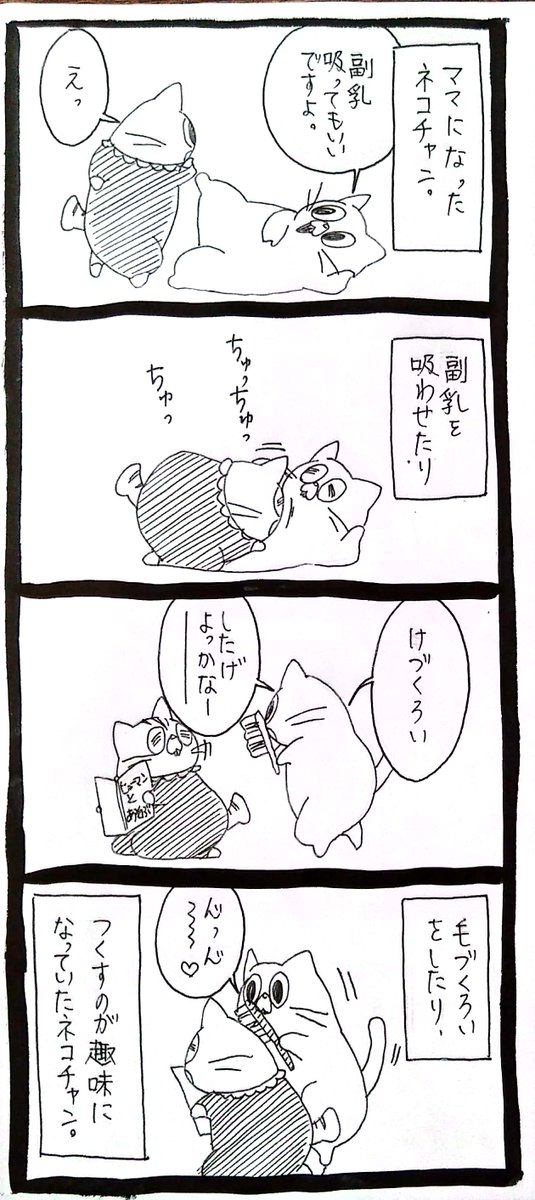 ママになった
ネコチャン。
副乳
吸ってもいい
ですよ。
えっ
副乳を
吸わせたり
ちゅっちゅっ
ちゅっ
けづくろい
したげ
よっかなー
ヒューマン
と
あそぶ
毛づくろい
をしたり、
んっん
〜〜♡
つくすのが趣味に
なっていたネコチャン。